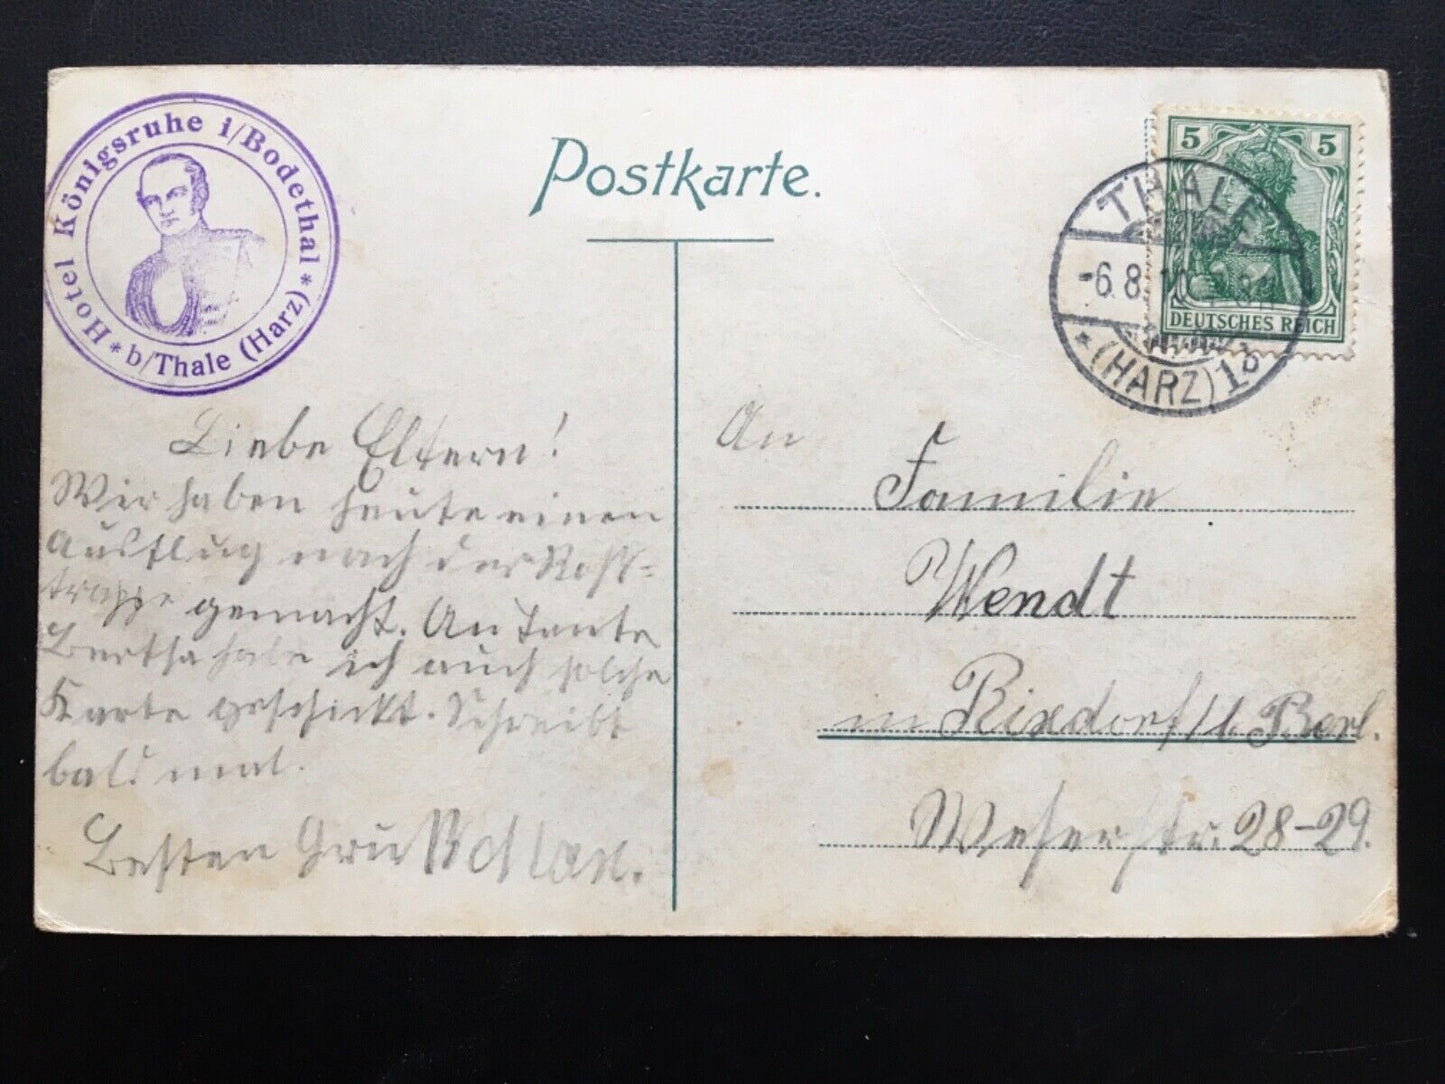 Hotel Königsruhe i/Bodethal * b/Thale (Harz) *
Postkarte.
5 5
DEUTSCHES REICH
THALE
-6.8.10
* (HARZ) 1
Liebe Eltern!
Wir haben heute einen
Ausflug nach der Roß-
trappe gemacht. An Tante
Bertha habe ich auch solche
Karte geschickt. Schreibt
bald mal.
Besten Gruß
An
Familie
Wendt
in Rixdorf / b. Berl.
Weserstr. 28-29.